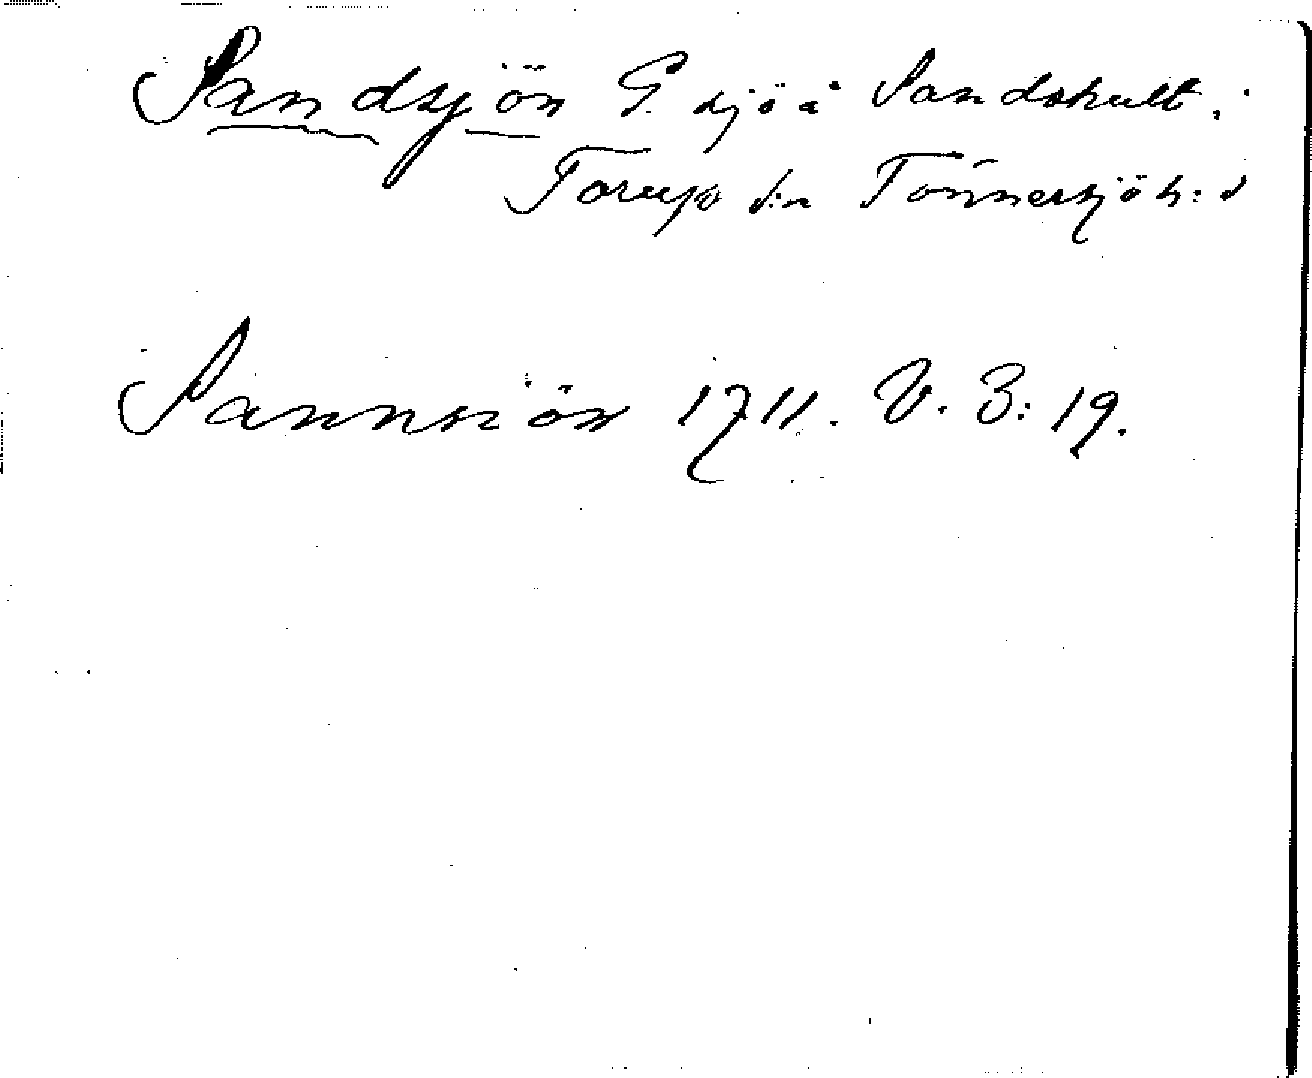 Sandsjön G. sjö å Sandshult, i
Torup s:n Tönnersjö h:d
Sannsiön 1711. V. 3: 19.